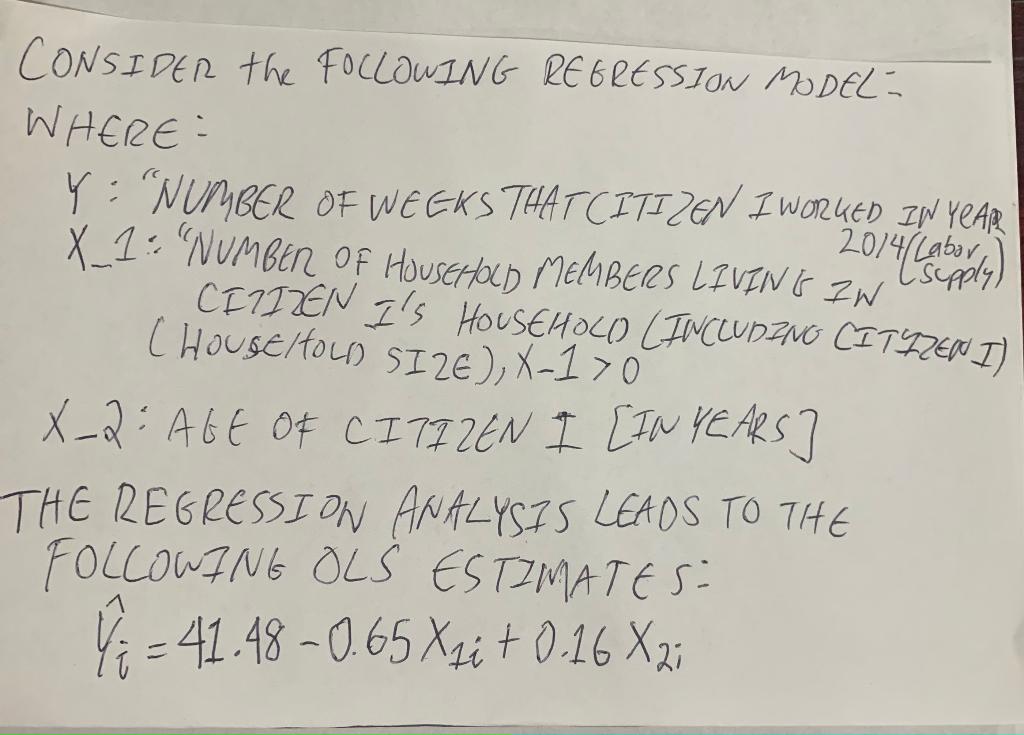 CONSIDER the FOLLOWING REGRESSION MODEL:
WHERE:
Y : "NUMBER OF WEEKS THAT CITIZEN I WORKED IN YEAR
2014 (Labor supply)
X_1: "NUMBER OF HOUSEHOLD MEMBERS LIVING IN
CITIZEN I'S HOUSEHOLD (INCLUDING CITYZEN I)
(HOUSEHOLD SIZE), X-1 > 0
X_2: AGE OF CITIZEN I [IN YEARS]
THE REGRESSION ANALYSIS LEADS TO THE
FOLLOWING OLS ESTIMATES:
Ŷi = 41.48 - 0.65 X1i + 0.16 X2i